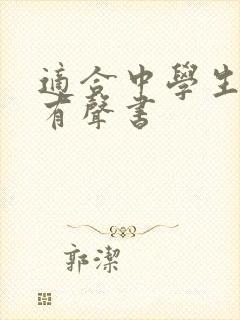 適合中學生
有聲書
郭潔